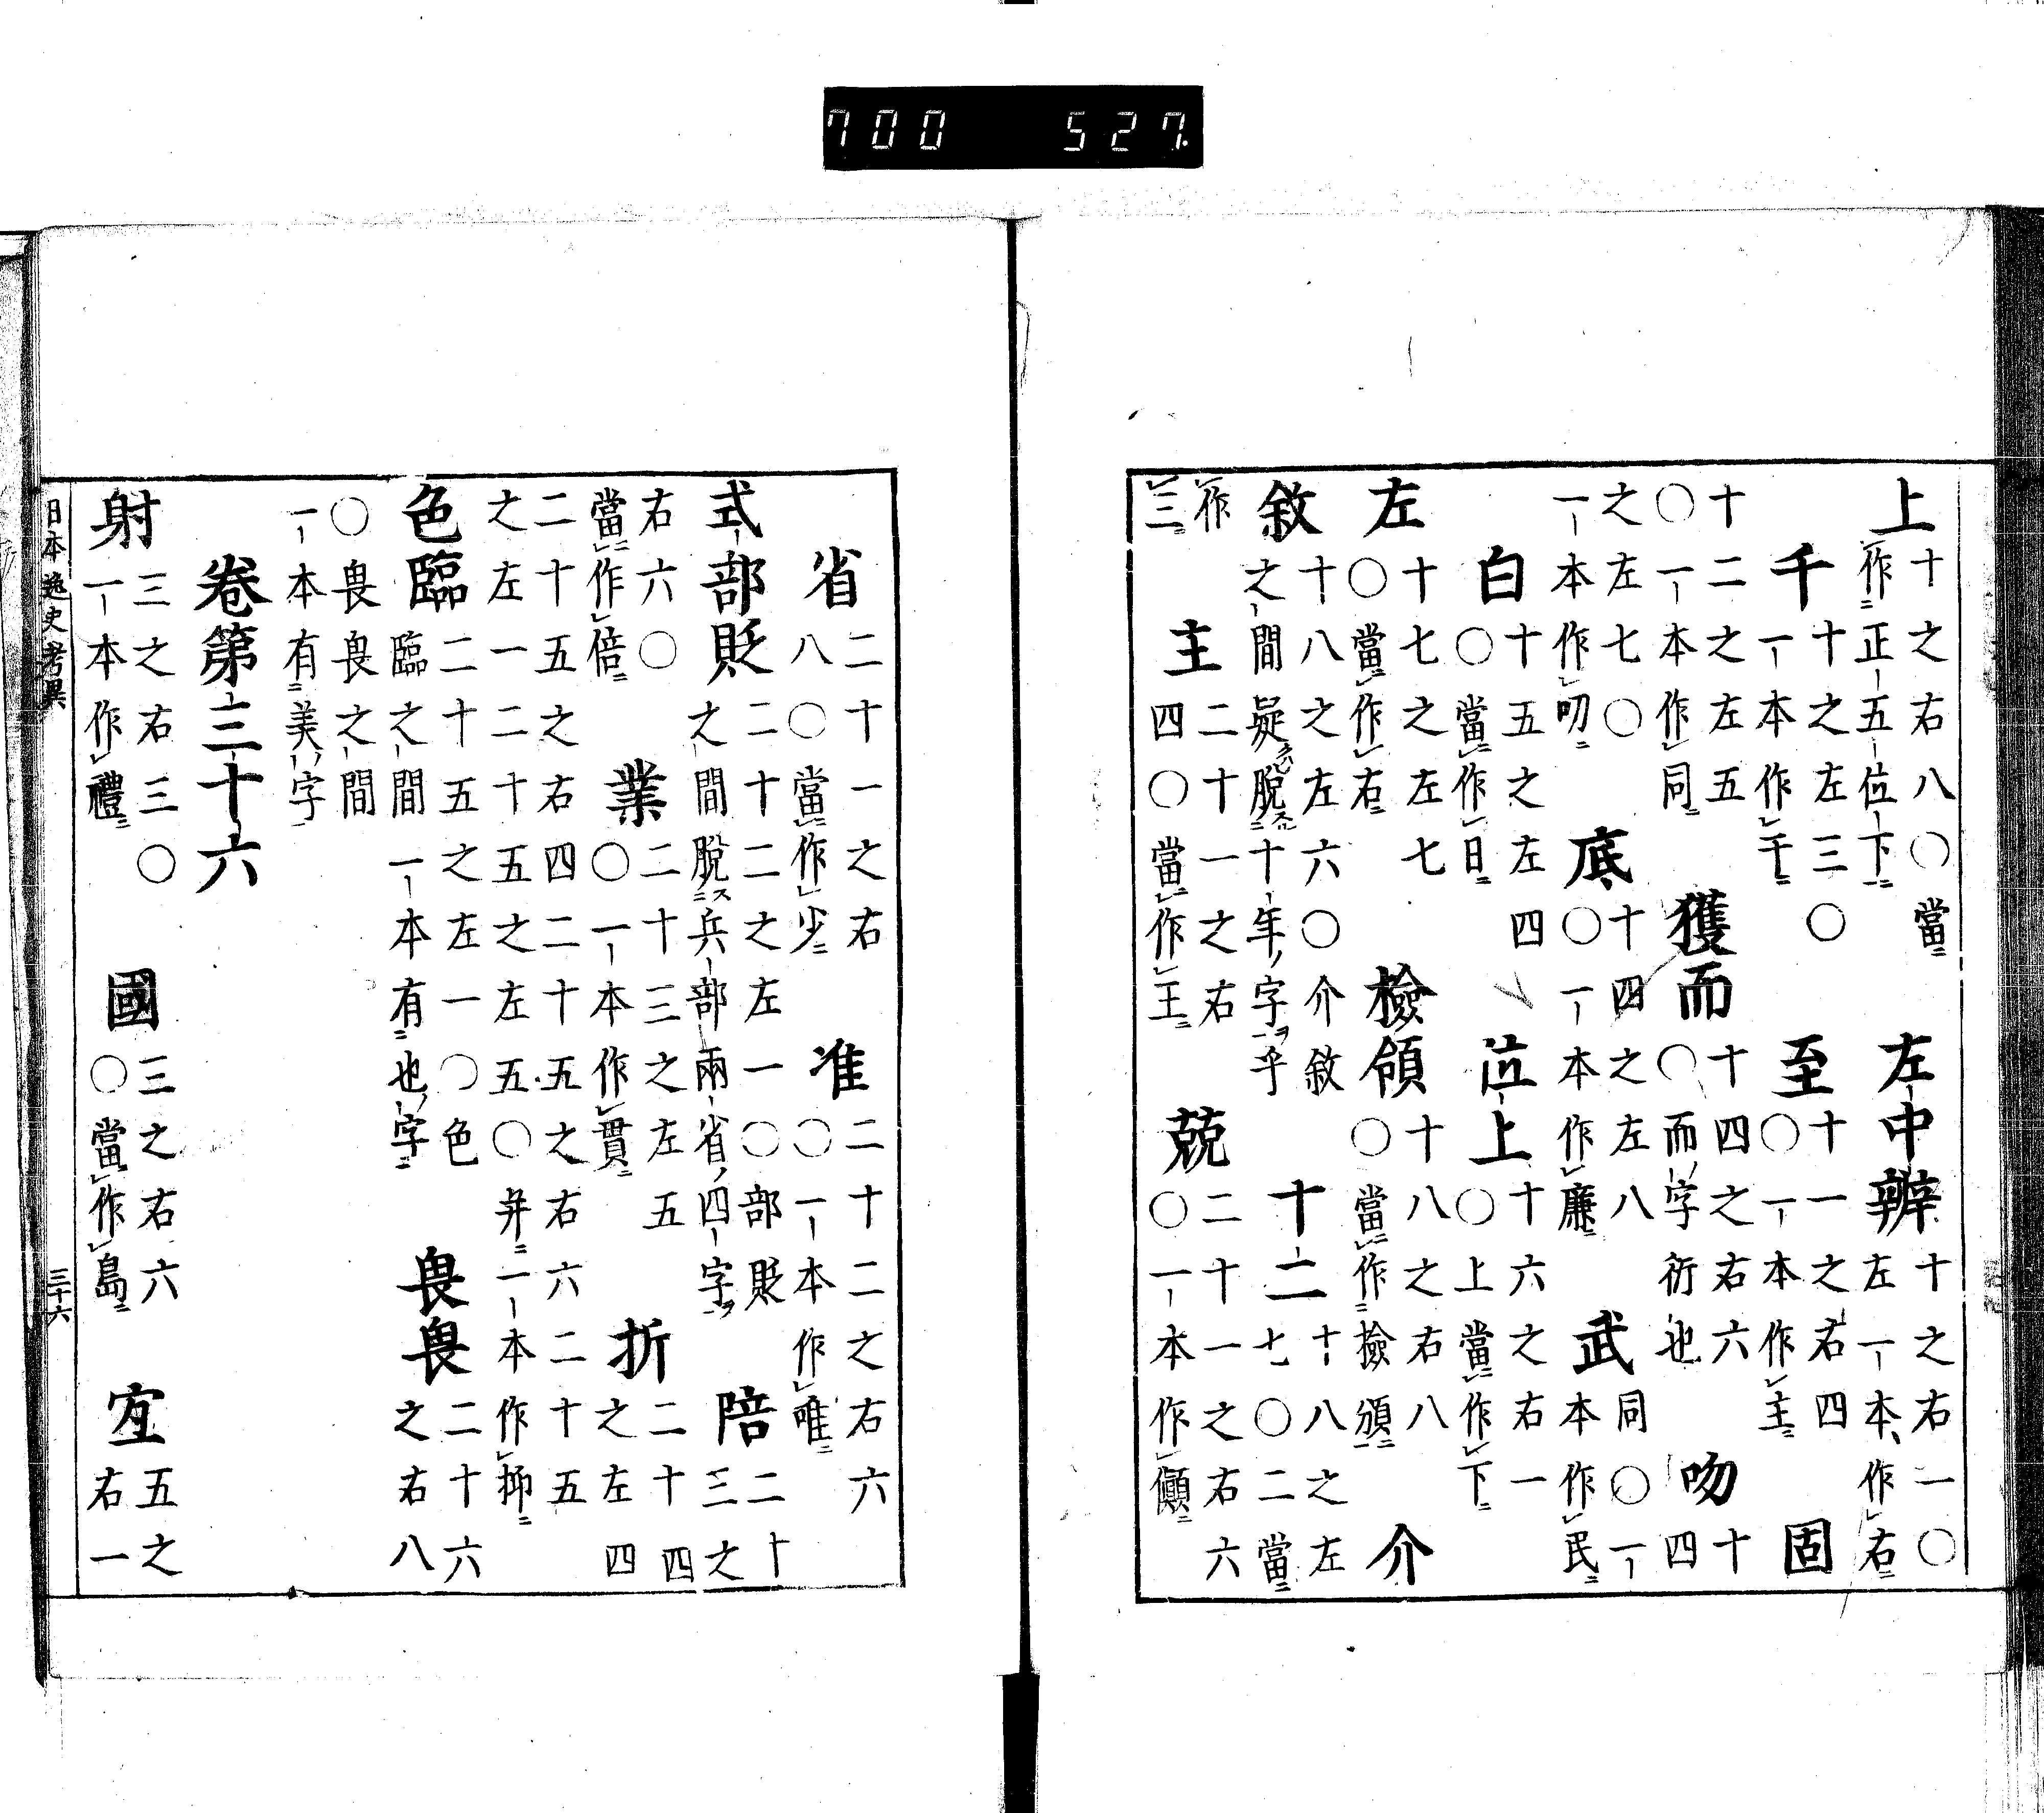 上十之右八〇當作正五位下　左中辨十之右一〇左一本作右
千十之左三〇一本作干　至十一之右四〇一本作主　固
十二之左五〇一本作同　獲而十四之右六〇而字衍也　吻十四
之左七〇一本作叨　底十四之左八〇一本作廉　武同〇一本作民
白十五之左四〇當作日　位上十六之右一〇上當作下
左十七之左七〇當作右　檢領十八之右八〇當作撿頒　介
敘十八之左六〇介敘之間疑脫十年字乎　十二十八之左七〇二當
作三　主二十一之右四〇當作王　兢二十一之右六〇一本作
省二十一之右八〇當作少　准二十二之右六〇一本作唯
式部貶二十二之左一〇部貶之間脫スハ兵部兩省四字ヲ　陪二十三之
右六〇當作倍　業二十三之左五〇一本作貫　折二十四之左四
二十五之右四二十五之右六二十五之左一二十五之左五〇并一本作抑
色臨二十五之左一〇色臨之間一本有也字　畏畏二十六之右八
〇畏畏之間一本有美字
卷第三十六
射三之右三〇一本作禮　國三之右六〇當作島　宐五之右一
日本逸史考異　三十六
700 527